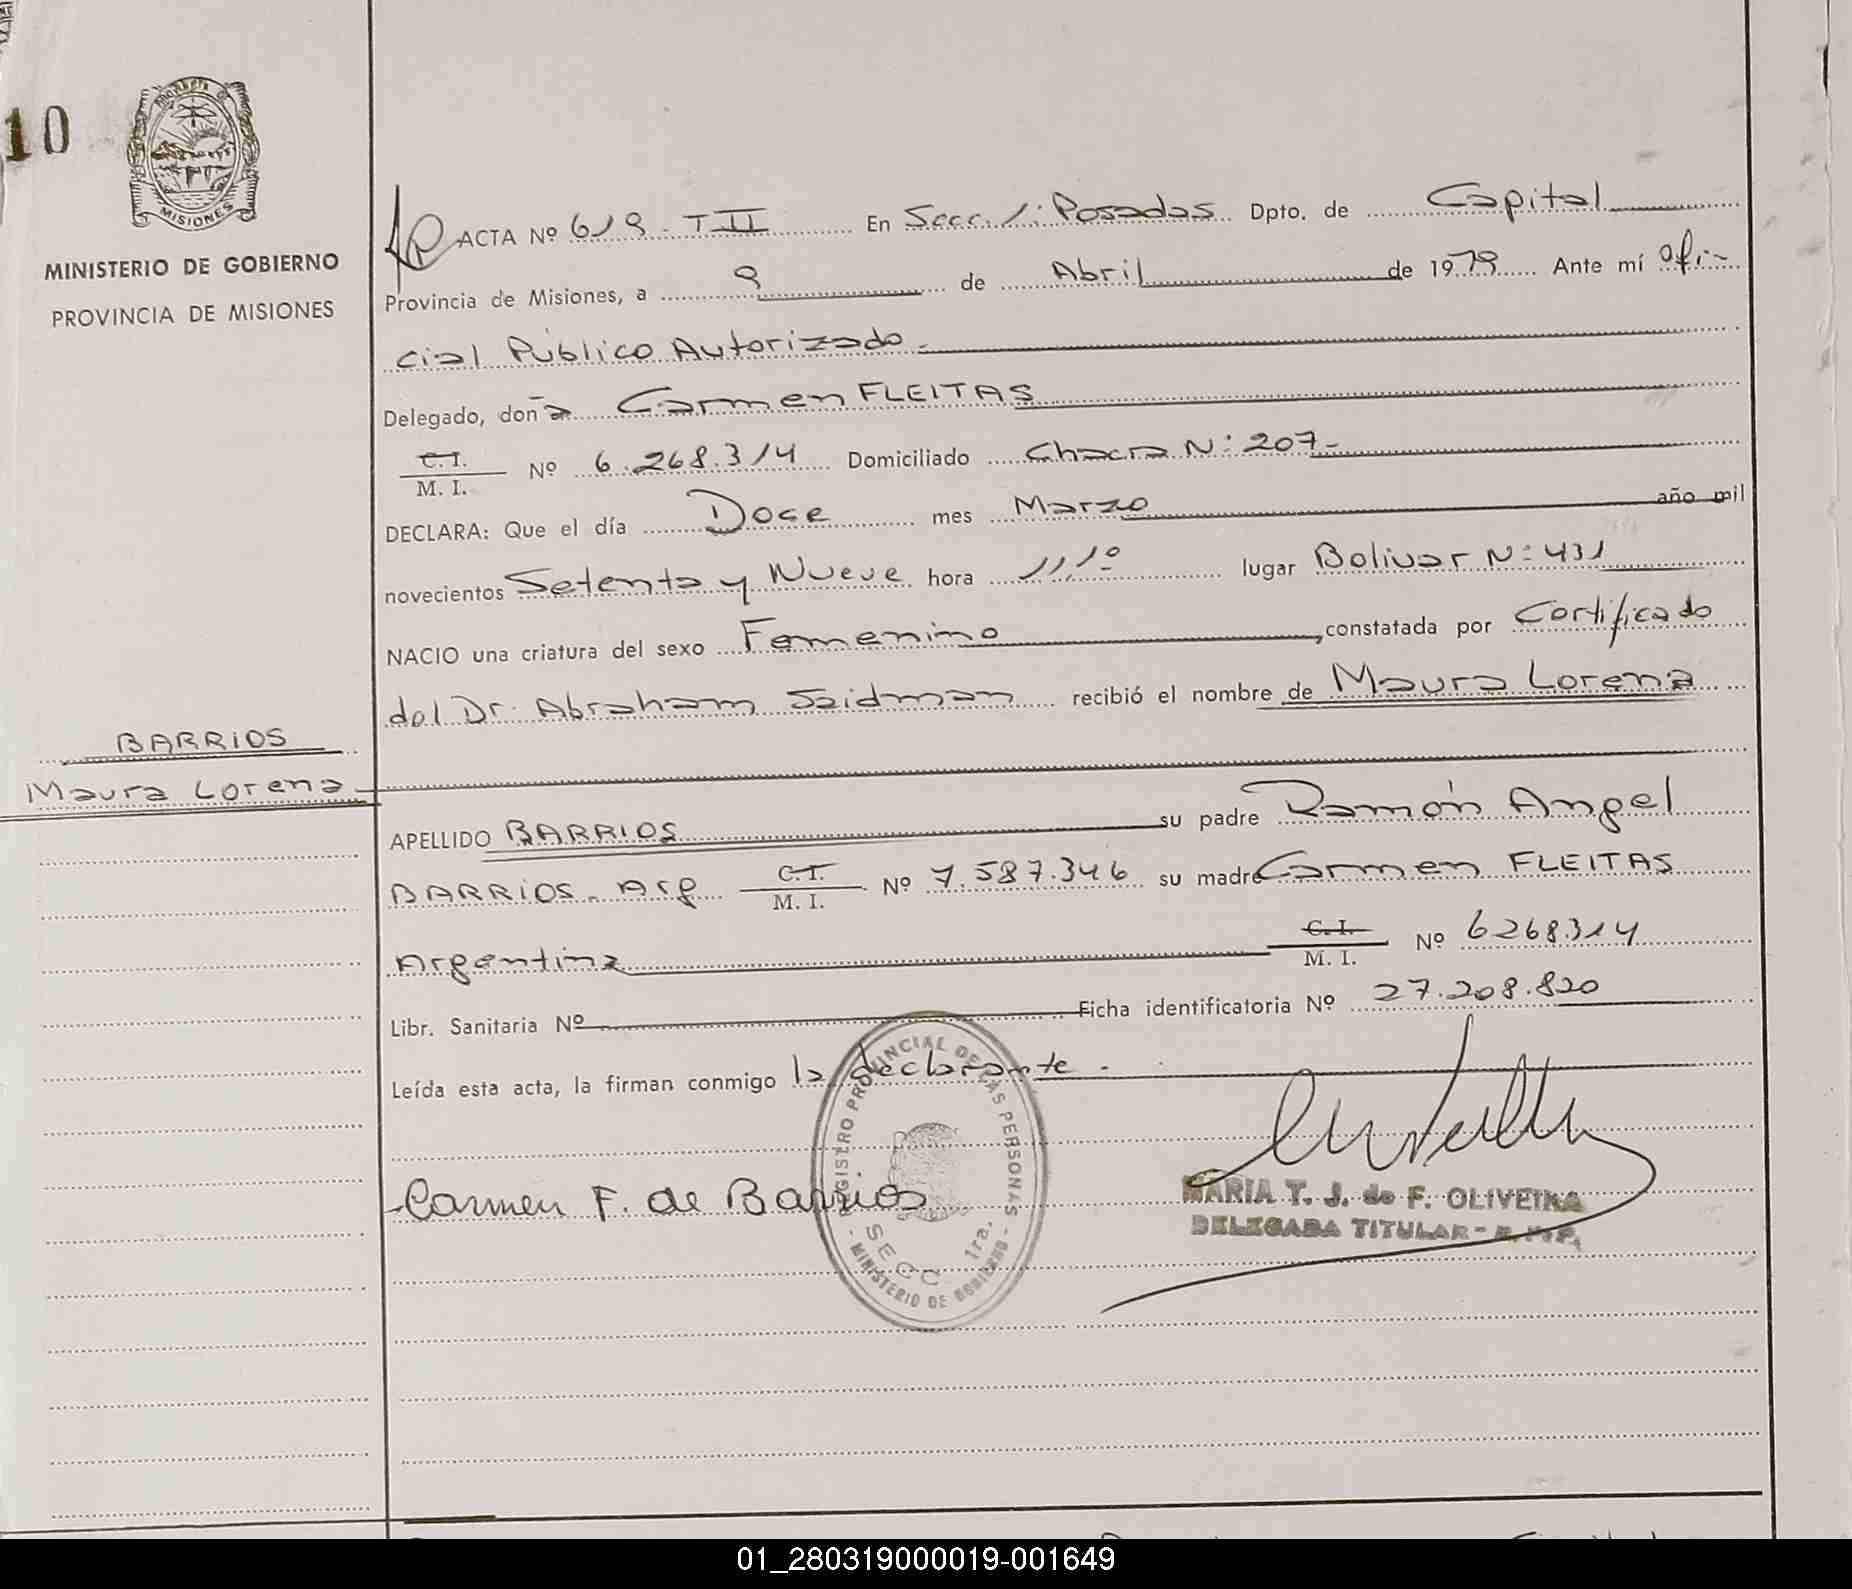 10
Misiones
MINISTERIO DE GOBIERNO
PROVINCIA DE MISIONES
ACTA Nº 619 - T II En Secc. 1: Posadas Dpto. de Capital
Provincia de Misiones, a 9 de Abril de 1979 Ante mí Ofi-
cial Público Autorizado.-
Delegado, doña Carmen FLEITAS
C. I.
M. I. Nº 6.268.314 Domiciliado Chacra N: 207-
DECLARA: Que el día Doce mes Marzo año mil
novecientos Setenta y Nueve hora 11,1º lugar Bolivar N: 431
NACIO una criatura del sexo Femenino, constatada por Certificado
del Dr. Abraham Saidman recibió el nombre de Maura Lorena
BARRIOS
Maura Lorena
APELLIDO BARRIOS su padre Ramón Angel
BARRIOS - Arg. C. I.
M. I. Nº 7.587.346 su madre Carmen FLEITAS
Argentina C. I.
M. I. Nº 6268.314
Libr. Sanitaria Nº Ficha identificatoria Nº 27.208.820
Leída esta acta, la firman conmigo la declarante.
Carmen F. de Barrios
REGISTRO PROVINCIAL DE LAS PERSONAS
SECC 1ra.
- MINISTERIO DE GOBIERNO -
MARIA T. J. de F. OLIVEIRA
DELEGADA TITULAR - R. P. P.
01_280319000019-001649